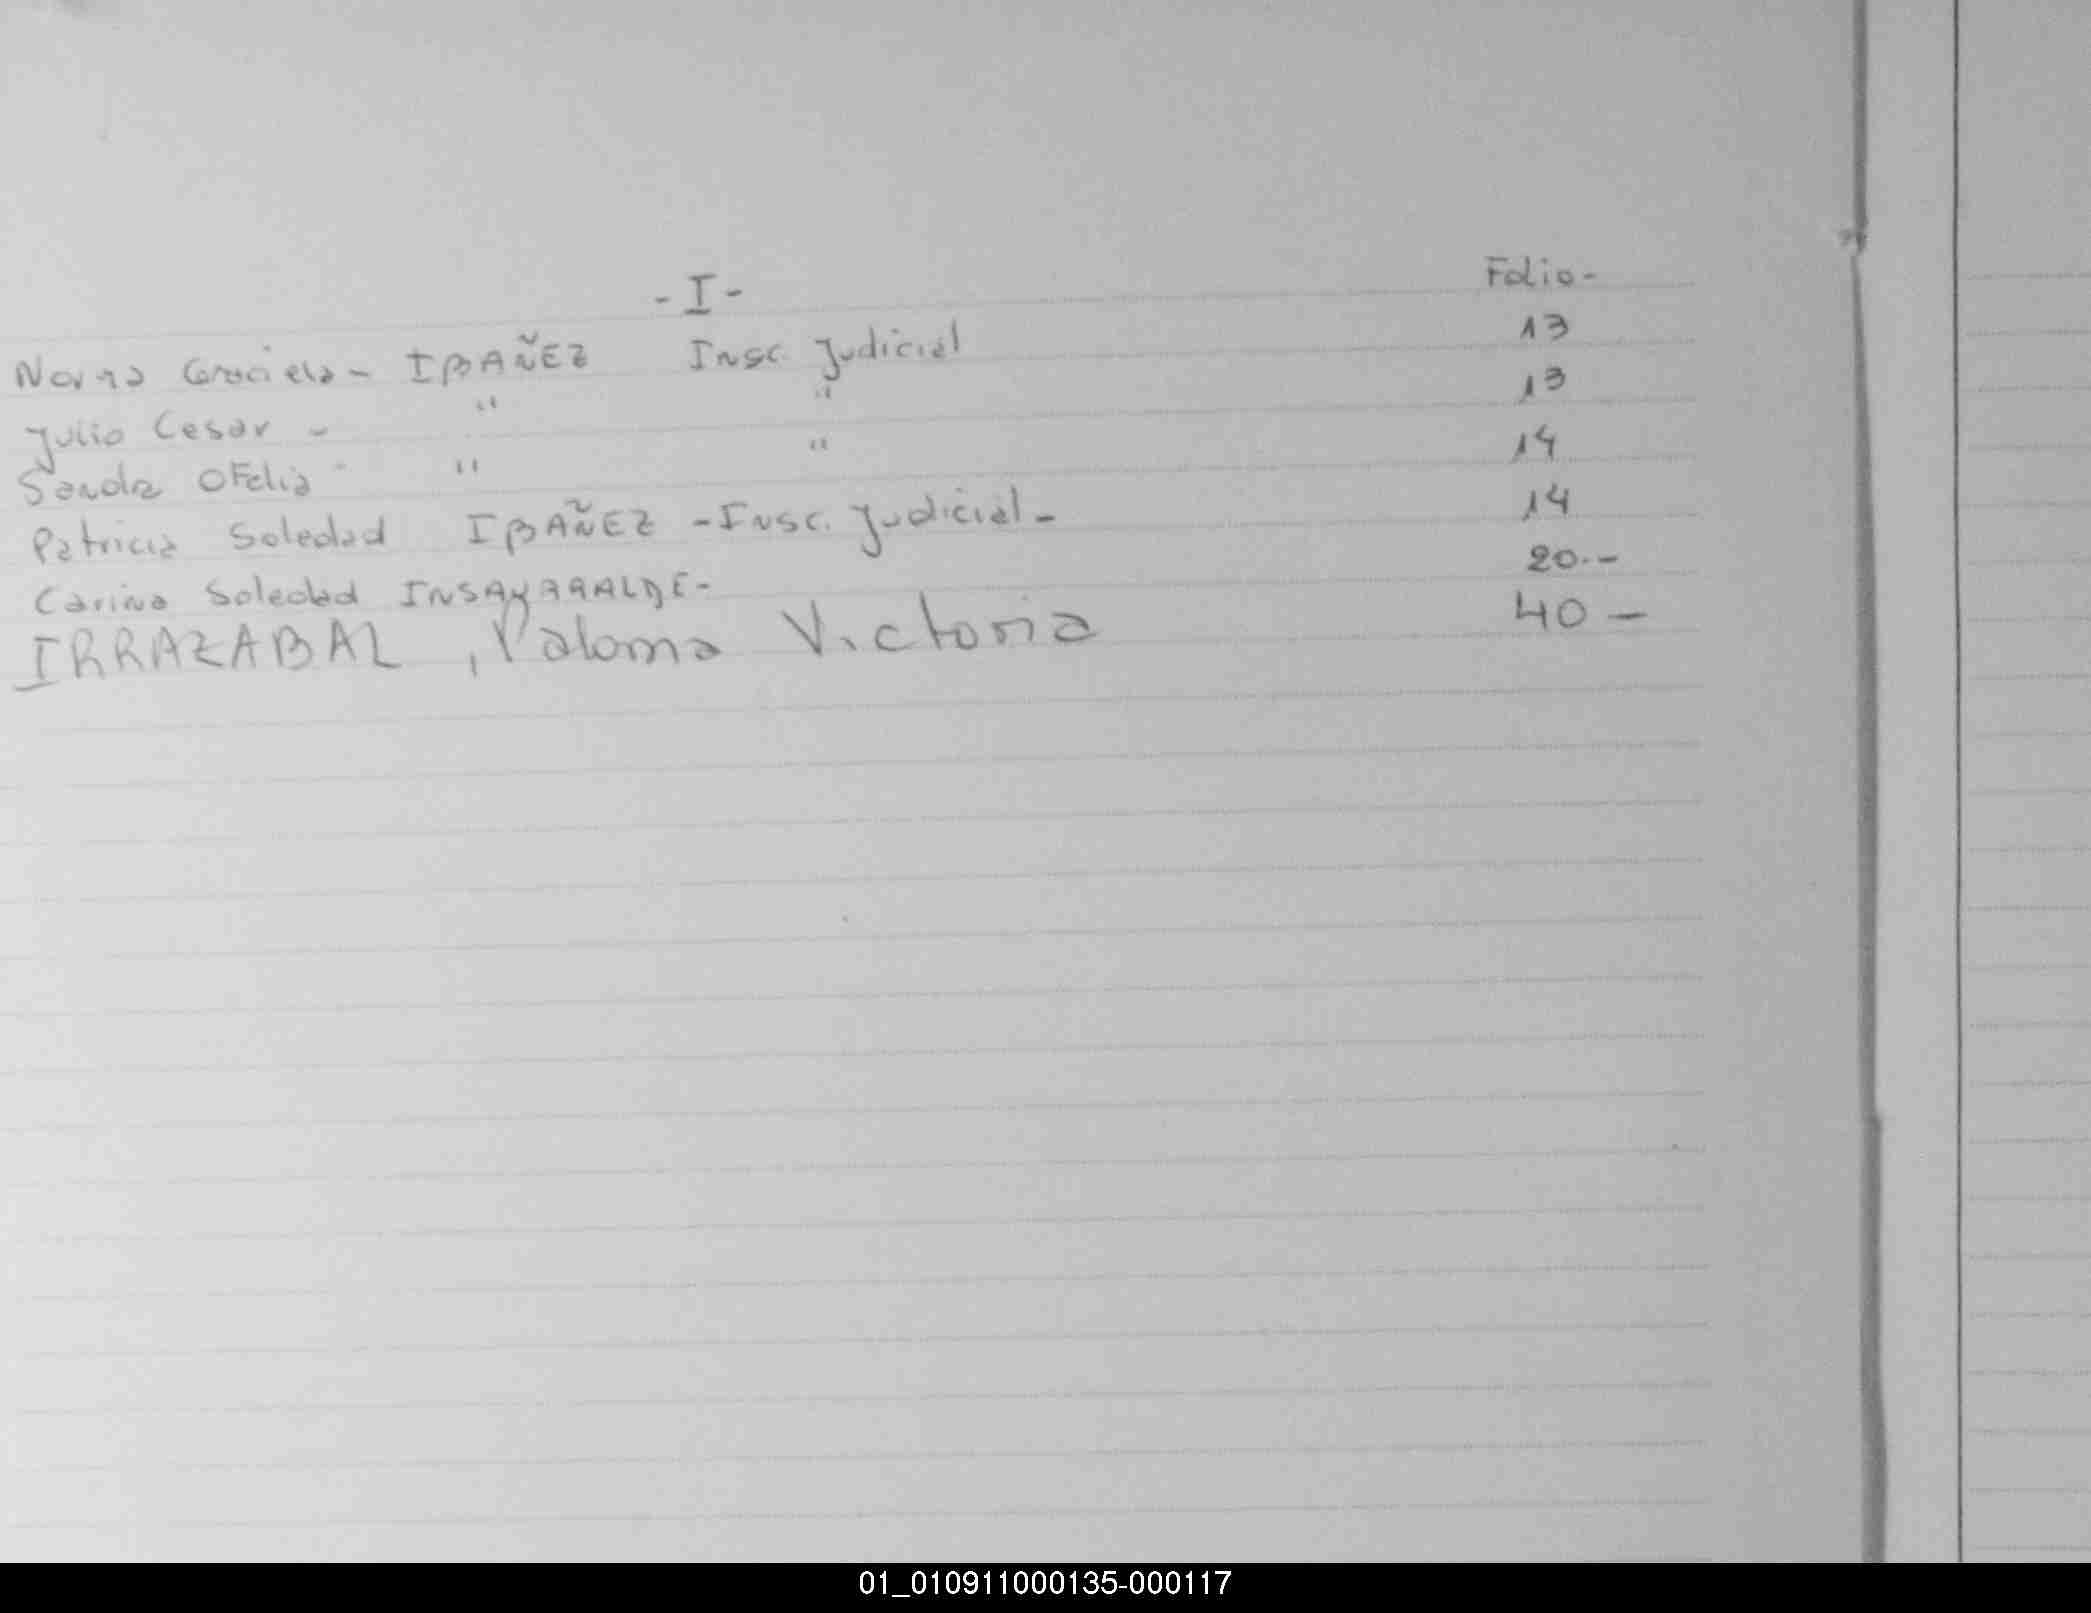 -I- Folio-
Norma Graciela - IBAÑEZ Insc. Judicial 13
Julio Cesar - " " 13
Sandra Ofelia - " " 14
Patricia Soledad IBAÑEZ - Insc. Judicial - 14
Carina Soledad INSAURRALDE - 20.-
IRRAZABAL, Paloma Victoria 40 -
01_010911000135-000117